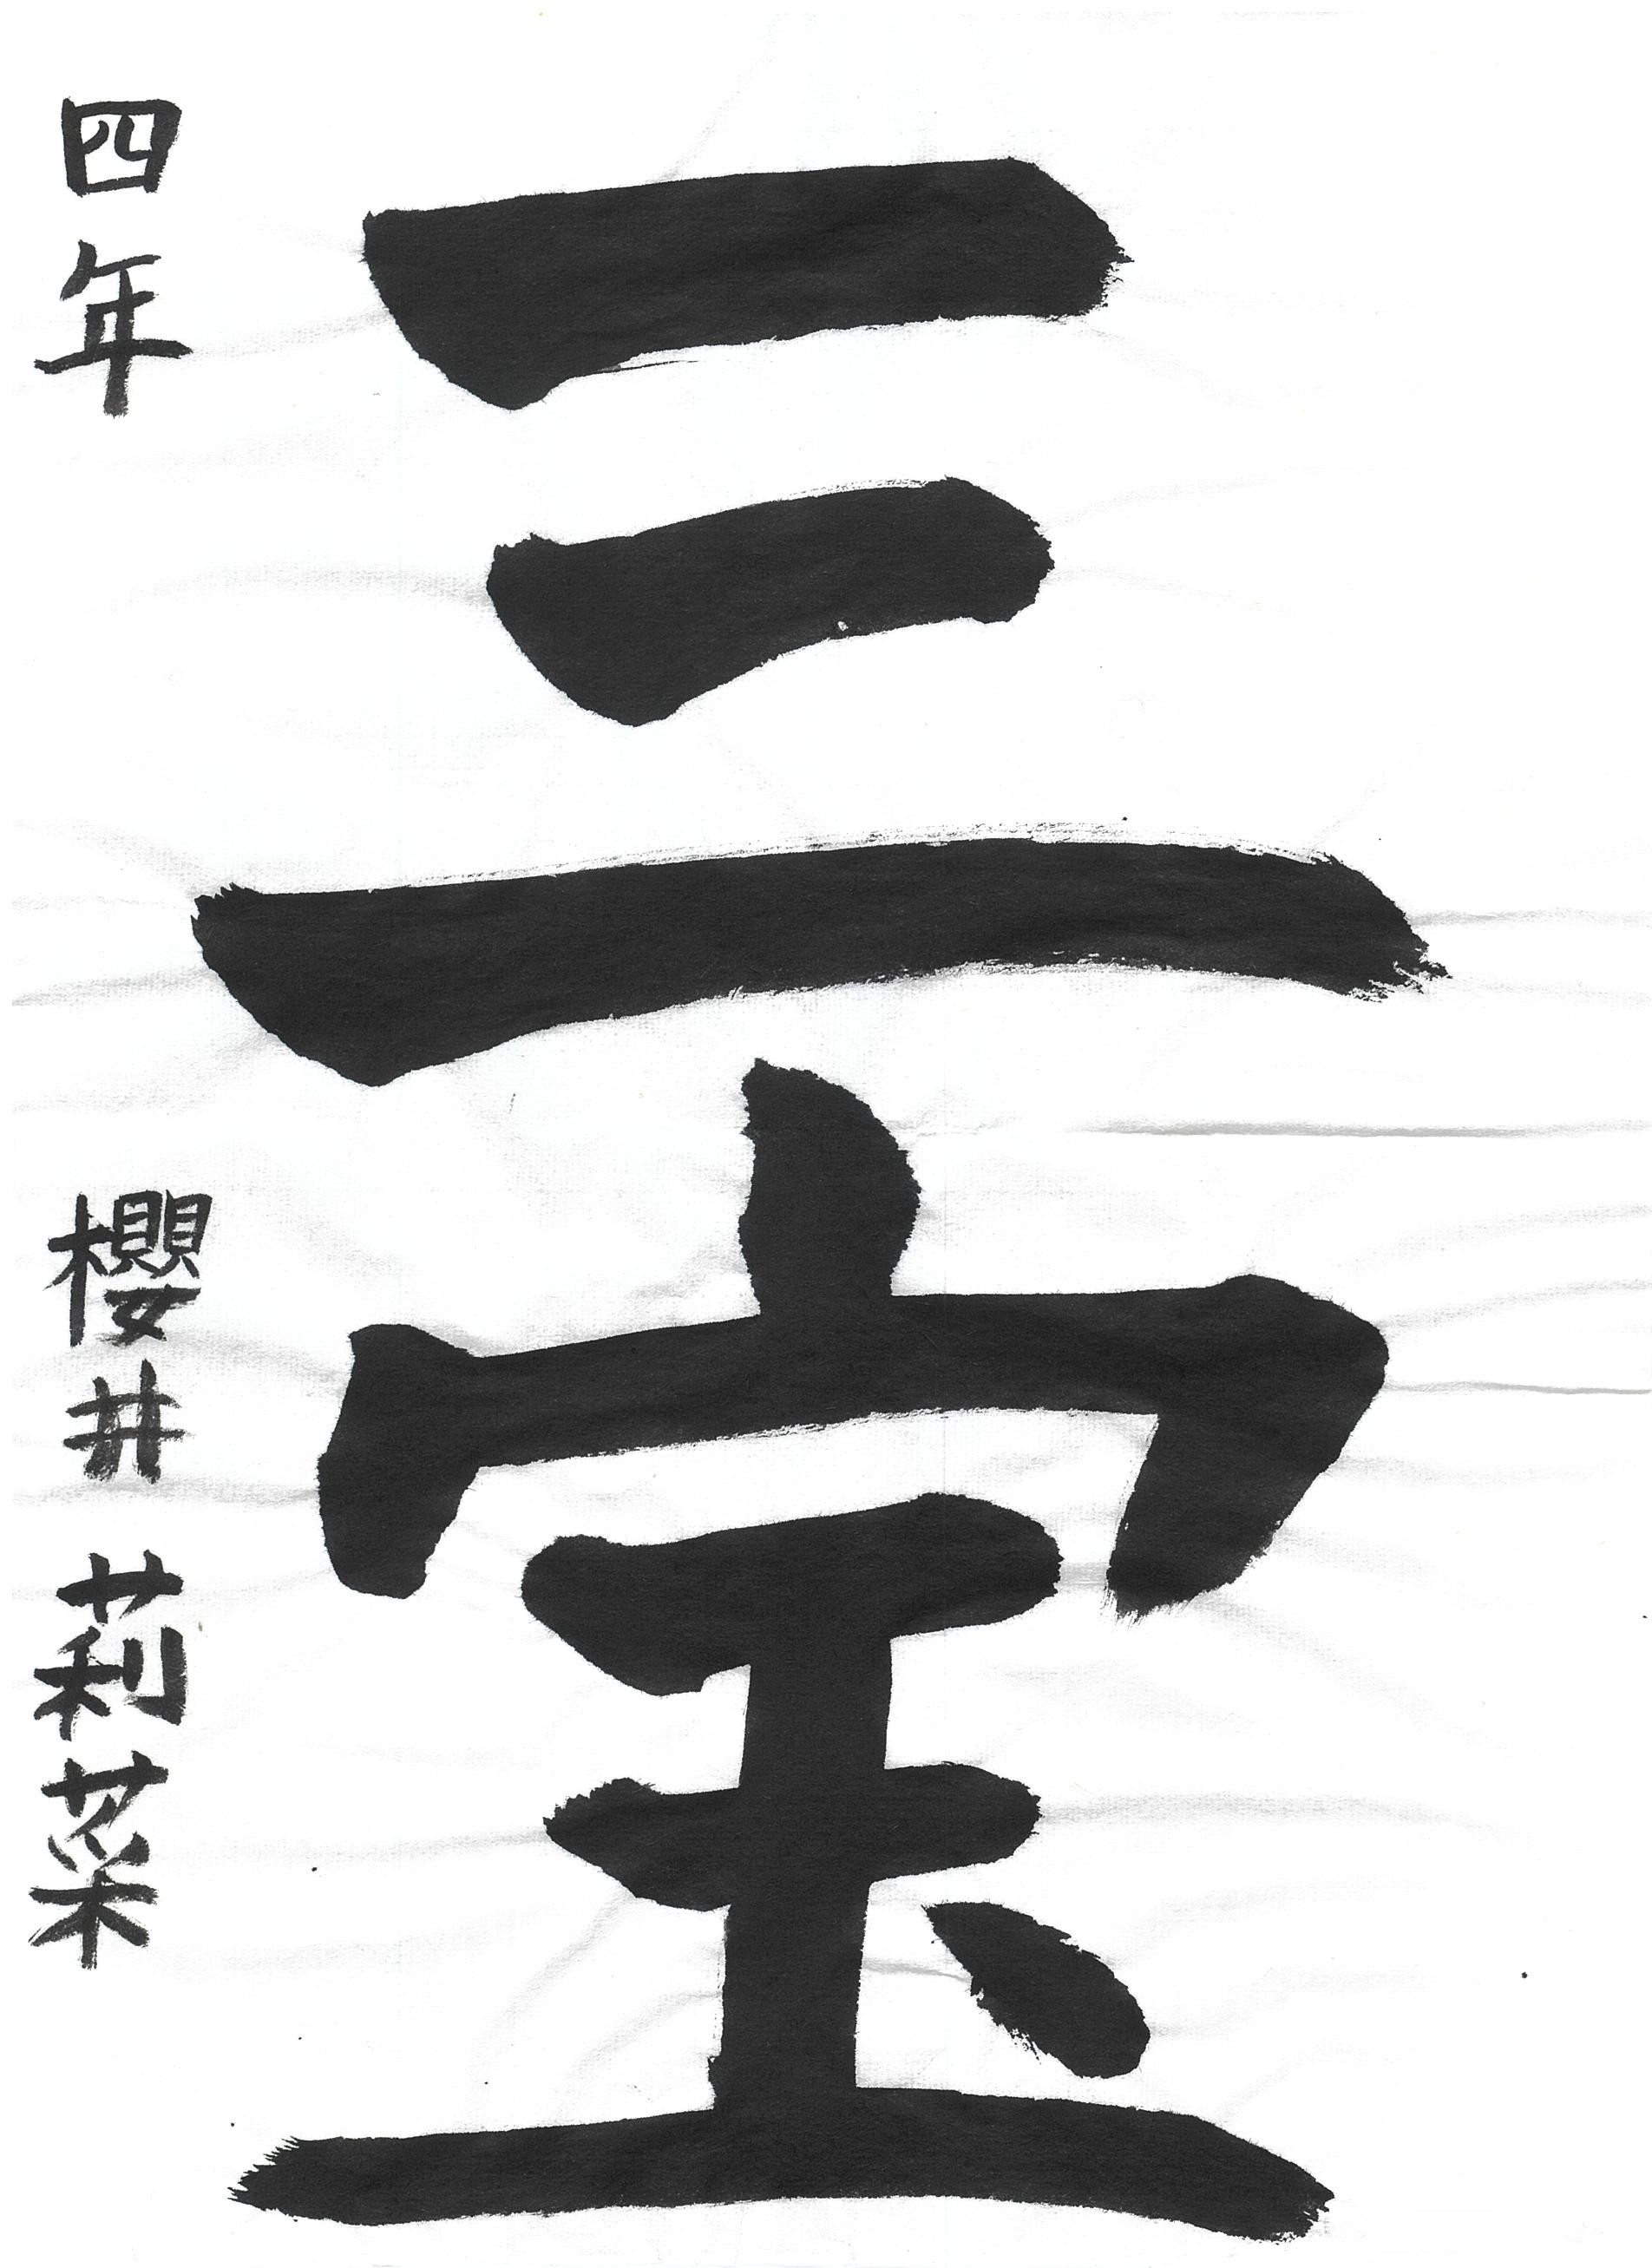 三宝
四年 櫻井 莉菜